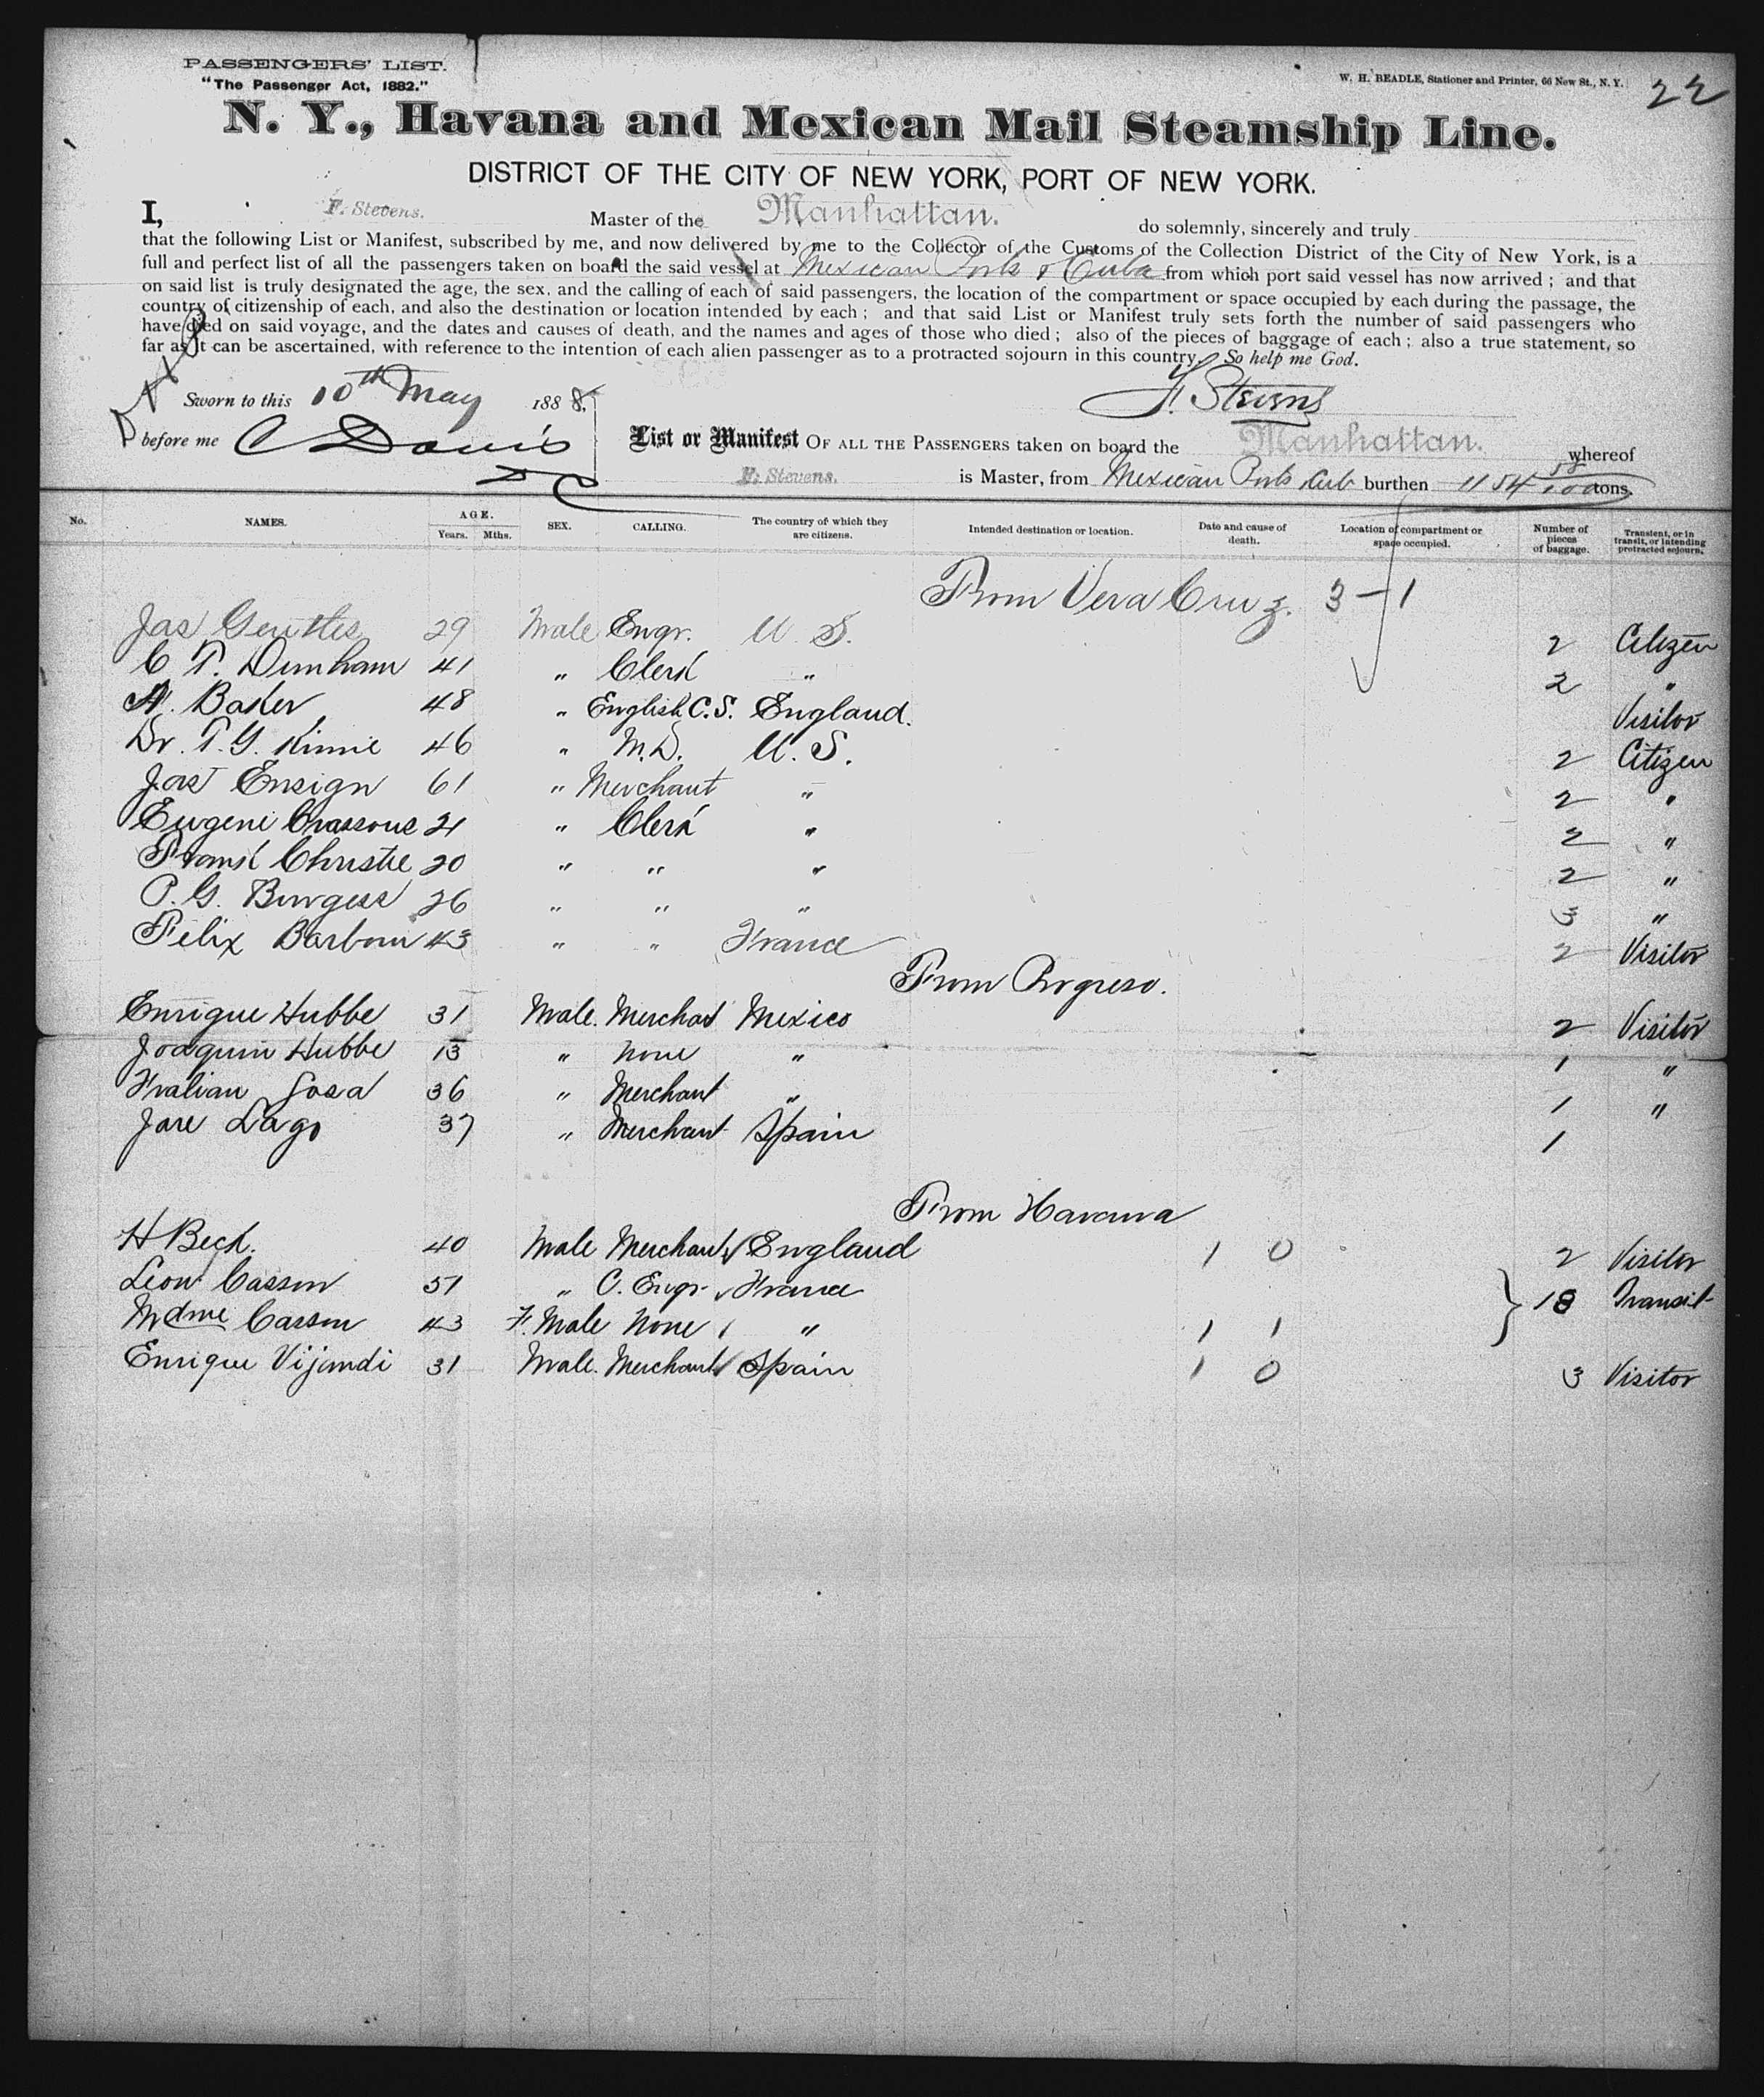 PASSENGERS' LIST.
"The Passenger Act, 1882."
W. H. BEADLE, Stationer and Printer, 66 New St., N.Y.
22
N. Y., Havana and Mexican Mail Steamship Line.
DISTRICT OF THE CITY OF NEW YORK, PORT OF NEW YORK.
I, F. Stevens. Master of the Manhattan. do solemnly, sincerely and truly
that the following List or Manifest, subscribed by me, and now delivered by me to the Collector of the Customs of the Collection District of the City of New York, is a
full and perfect list of all the passengers taken on board the said vessel at Mexican Ports & Cuba from which port said vessel has now arrived ; and that
on said list is truly designated the age, the sex, and the calling of each of said passengers, the location of the compartment or space occupied by each during the passage, the
country of citizenship of each, and also the destination or location intended by each ; and that said List or Manifest truly sets forth the number of said passengers who
have died on said voyage, and the dates and causes of death, and the names and ages of those who died ; also of the pieces of baggage of each ; also a true statement, so
far as it can be ascertained, with reference to the intention of each alien passenger as to a protracted sojourn in this country. So help me God.
Sworn to this 10th May 1888,
F. Stevens
before me C Davis
List or Manifest OF ALL THE PASSENGERS taken on board the Manhattan. whereof
F. Stevens. is Master, from Mexican Ports Cub burthen 1154 58/100 tons.
No. NAMES. AGE. Years. Mths. SEX. CALLING. The country of which they are citizens. Intended destination or location. Date and cause of death. Location of compartment or space occupied. Number of pieces of baggage. Transient, or in transit, or intending protracted sojourn.
From Vera Cruz. 3-1
Jas 29 Male Engr. U. S. 2 Citizen
C T. Dunham 41 " Clerk " 2 "
A. Baker 48 " English C.S. England. Visitor
Dr. T. G. Kinnie 46 " M.D. U. S. 2 Citizen
Jas Ensign 61 " Merchant " 2 "
Eugene Crassous 21 " Clerk " 2 "
Frank Christie 20 " " " 2 "
P. G. Burgess 26 " " " 3 "
Felix Barbour 43 " " France 2 Visitor
From Progreso.
Enrique Hubbe 31 Male. Merchant Mexico 2 Visitor
Joaquin Hubbe 13 " None " 1 "
Sosa 36 " Merchant " 1 "
Jose Lago 37 " Merchant Spain 1
From Havana
H Beck. 40 Male Merchant England 1 0 2 Visitor
Leon Casson " C. Engr. France } 18 Transit
Mdme Casson 43 F. Male None " 1 1
Enrique Vijandi 31 Male. Merchant Spain 1 0 3 Visitor